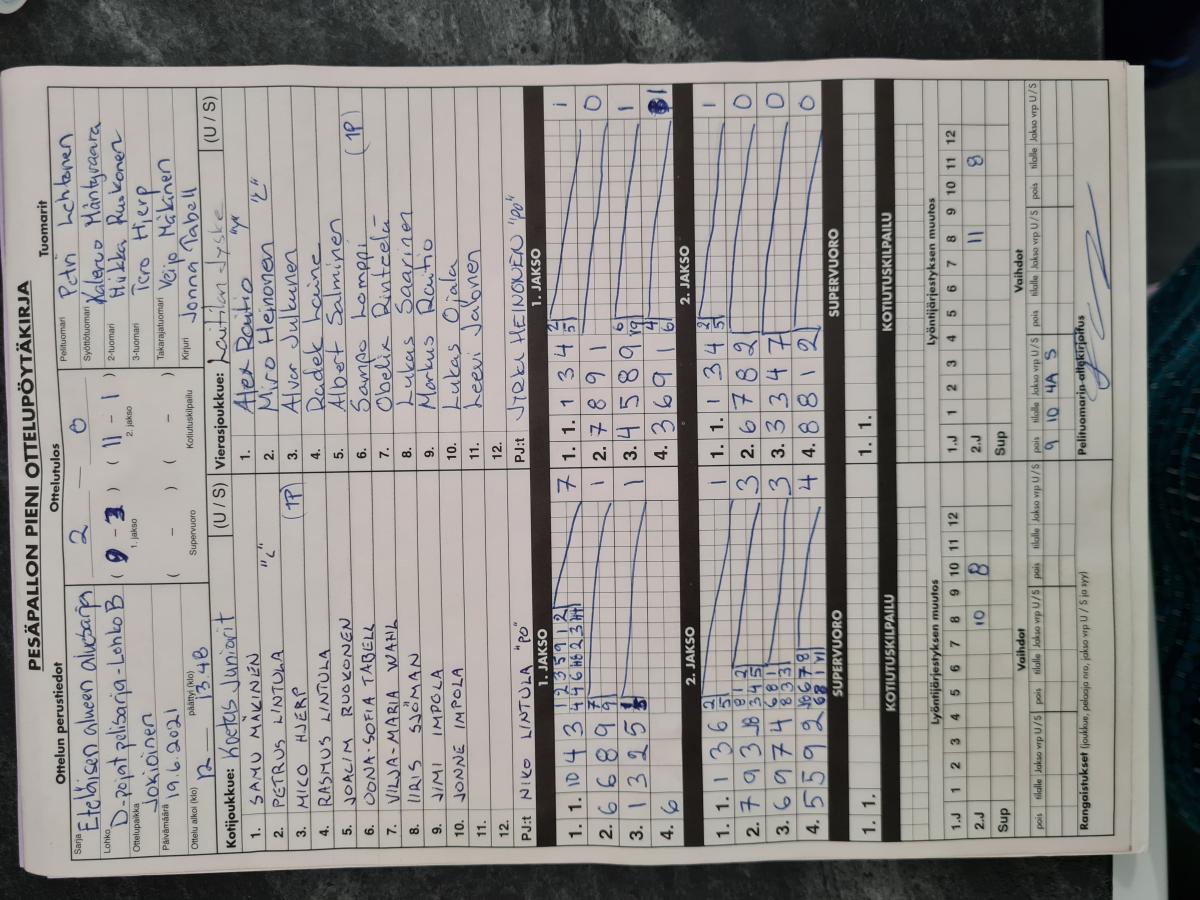 PESÄPALLON PIENI OTTELUPÖYTÄKIRJA
Ottelun perustiedot
Sarja
Eteläisen alueen aluesarja
Lohko
D-pojat pelisarja - Lohko B
Ottelupaikka
Jokioinen
Päivämäärä
19.6.2021
Ottelu alkoi (klo) päättyi (klo)
12 — 13.48
Ottelutulos
2 — 0
( 9 - 3 ) ( 11 - 1 )
1. jakso 2. jakso
( - ) ( - )
Supervuoro Kotiutuskilpailu
Tuomarit
Pelituomari Petri Lehtonen
Syöttötuomari Kalervo Mäntyvaara
2-tuomari Miikka Ruokonen
3-tuomari Tero Hjerp
Takarajatuomari Veijo Mäkinen
Kirjuri Jonna Tabell
Kotijoukkue: Koetus Juniorit (U / S)
1. SAMU MÄKINEN
2. PETRUS LINTULA "L"
3. MICO HJERP (1P)
4. RASMUS LINTULA
5. JOACIM RUOKONEN
6. OONA-SOFIA TABELL
7. VILJA-MARIA WAHL
8. IIRIS SJÖMAN
9. JIMI IMPOLA
10. JONNE IMPOLA
11.
12.
PJ:t NIKO LINTULA "PO"
Vierasjoukkue: Laitilan Jyske (U / S)
1. Alex Rautio
2. Miro Heinonen "L"
3. Alvar Julkunen
4. Radek Laine
5. Albet Salminen
6. Sampo Lomppi (1P)
7. Obelix Rintelä
8. Lukas Saarinen
9. Markus Rautio
10. Lukas Ojala
11. Leevi Jalonen
12.
PJ:t Jirka HEINONEN "PO"
1. JAKSO
1. 1. 10 4 3 7
2. 6 6 8 9 1
3. 1 3 2 5 1
4. 6
1. JAKSO
1. 1. 1 3 4 1
2. 7 8 9 1 0
3. 4 5 8 9 1
4. 3 6 9 1 1
2. JAKSO
1. 1. 1 3 6 1
2. 7 9 3 10 3
3. 6 9 7 4 3
4. 5 5 9 2 4
2. JAKSO
1. 1. 1 3 4 1
2. 6 7 8 2 0
3. 3 3 4 7 0
4. 8 8 1 2 0
SUPERVUORO
1. 1.
SUPERVUORO
1. 1.
KOTIUTUSKILPAILU
KOTIUTUSKILPAILU
Lyöntijärjestyksen muutos
1.J 1 2 3 4 5 6 7 8 9 10 11 12
2.J 10 8
Sup
Lyöntijärjestyksen muutos
1.J 1 2 3 4 5 6 7 8 9 10 11 12
2.J 11 8
Sup
Vaihdot
pois tilalle Jakso vrp U / S pois tilalle Jakso vrp U / S pois tilalle Jakso vrp U / S
Vaihdot
pois tilalle Jakso vrp U / S pois tilalle Jakso vrp U / S pois tilalle Jakso vrp U / S
9 10 4A S
Rangaistukset (joukkue, pelaaja nro, jakso vrp U / S ja syy)
Pelituomarin allekirjoitus